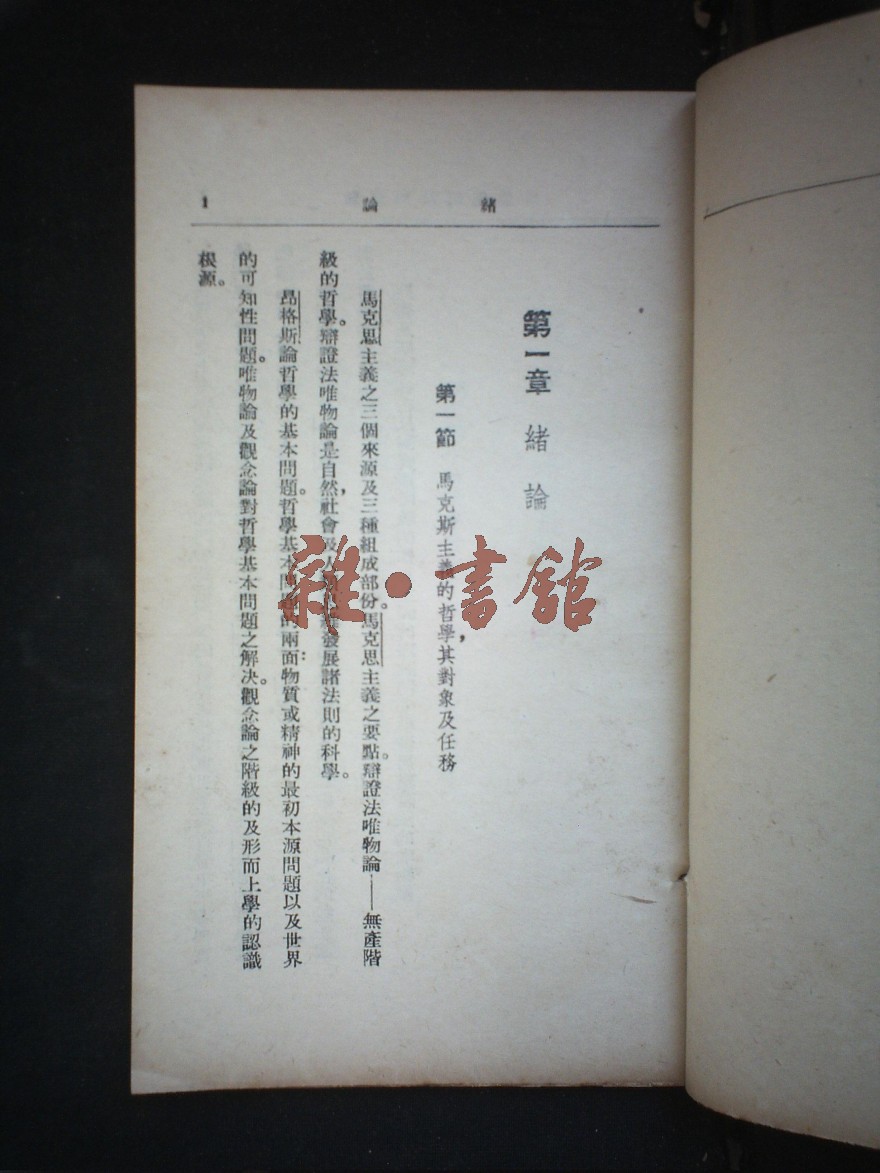 緒論
1
第一章 緒論
第一節 馬克斯主義的哲學，其對象及任務
馬克思主義之三個來源及三種組成部份。馬克思主義之要點。辯證法唯物論——無產階
級的哲學。辯證法唯物論是自然，社會及人發展諸法則的科學。
昂格斯論哲學的基本問題。哲學基本問題的兩面：物質或精神的最初本源問題以及世界
的可知性問題。唯物論及觀念論對哲學基本問題之解決。觀念論之階級的及形而上學的認識
根源。
雜·書館